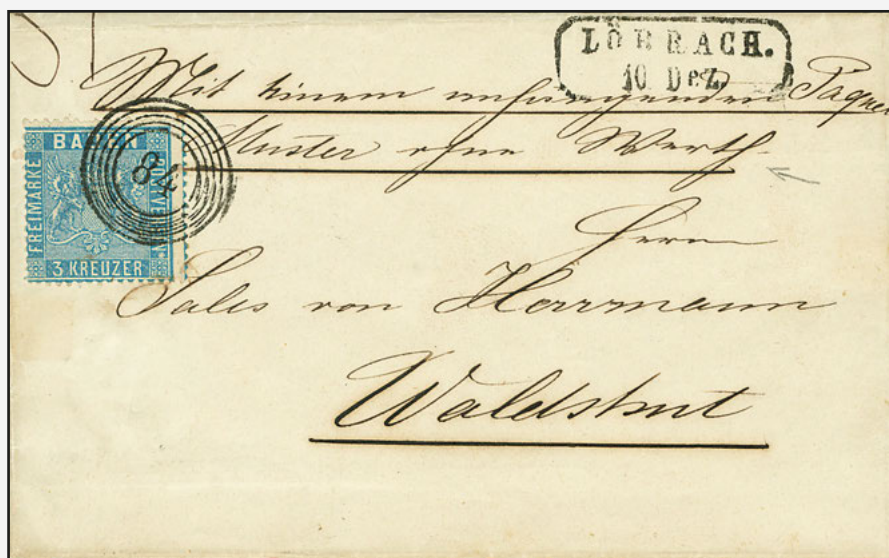 LÖRRACH.
10 Dez.
Mit einem anhangenden Paquet
Muster ohne Werth.
BADEN
FREIMARKE
POSTVEREIN
3 KREUZER
84
Herrn
Sales von Herrmann
Waldshut